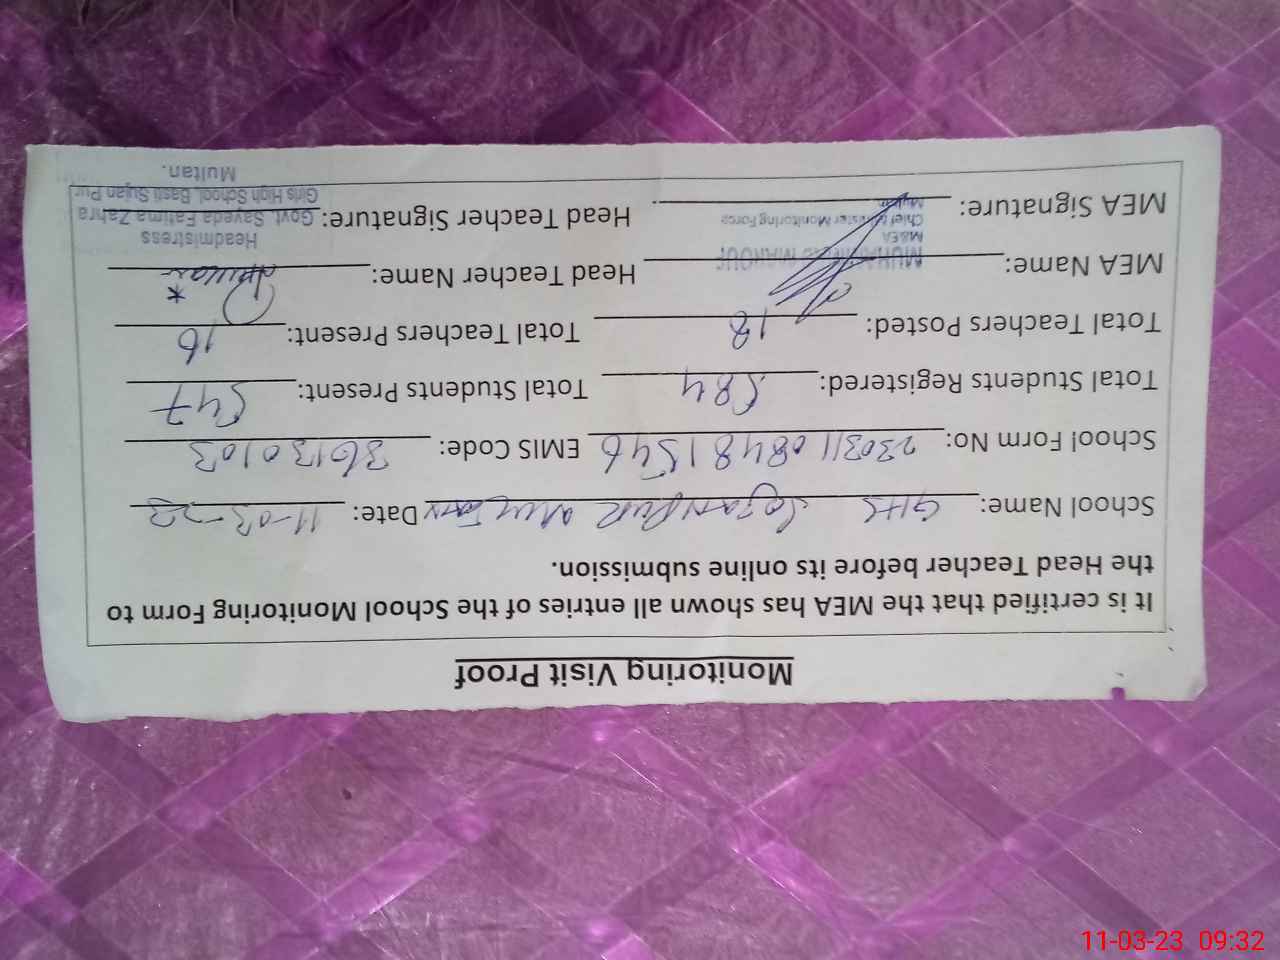 Monitoring Visit Proof
It is certified that the MEA has shown all entries of the School Monitoring Form to
the Head Teacher before its online submission.
School Name: GHS Sojan Pur Multan Date: 11-03-23
School Form No: 23031108481546 EMIS Code: 36130103
Total Students Registered: 584 Total Students Present: 547
Total Teachers Posted: 18 Total Teachers Present: 16
MEA Name: Head Teacher Name:
MUHAMMAD MAROUF
M&EA
Chief Minister Monitoring Force
MEA Signature: Head Teacher Signature:
Headmistress
Govt. Sayeda Fatima Zahra
Girls High School, Basti Sujan Pur
Multan.
11-03-23 09:32